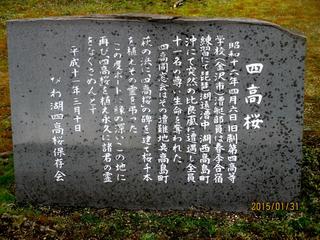 四高桜
昭和十六年四月六日旧制第四高等
学校(金沢市)漕艇部員は春季合宿
練習にて琵琶湖遠漕中 湖西高島町
沖にて突然の比良颪に遭遇し全員
十一名の尊い生命を奪われた
四高同窓会はその遭難地点高島町
萩の浜に四高桜の碑を建て桜千本
を植えその霊を弔った
この度ボートに縁の深いこの地に
再び四高桜を植え永久に諸君の霊
をなぐさめんとす
平成十一年三月十日
びわ湖四高桜保存会
2015/01/31